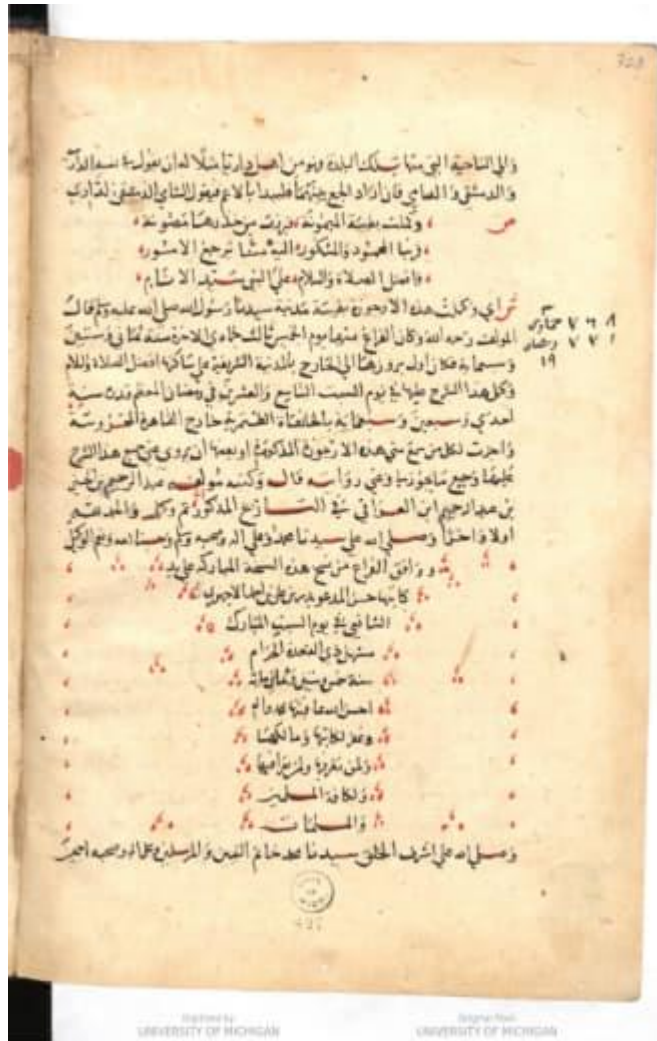 والى الناحية التى منها تلك البلدة وهو من اهل داريا مثلا له ان يقول فى نسبه الدارى
والدمشقى و الشامى فان اراد الجمع بينهما فليبدا بالاعم فيقول الشامى الدمشقى الدارى
ص وكملت بطيبة الميمونة فبرزت من خدرها مصونة
فربنا المحمود والمشكور اليه منا ترجع الامور
وافضل الصلاة والسلام على النبى سيد الانام
ش اى وكملت هذه الارجوزة بطيبة مدينة سيدنا رسول الله صلى الله عليه وسلم قال
المولف رحمه الله وكان الفراغ منها يوم الخميس ثالث جمادى الاخرة سنة ثمانى وستين
وسبعماية فكان اول بروزها الى الخارج بالمدينة الشريفة على ساكنها افضل الصلاة والسلام
وكمل هذا الشرح عليها فى يوم السبت التاسع والعشرين من رمضان المعظم قدره سنة
احدى وسبعين وسبعماية بالخانقاة الطشتمرية خارج القاهرة المحروسة
واجزت لكل من سمع منى هذه الارجوزة المذكورة او بعضها ان يروى عنى جميع هذا الشرح
عليها وجميع ما يجوز لى وعنى روايته قال وكتبه مولفه عبد الرحيم بن الحسين
بن عبد الرحيم ابن العراقى فى التاريخ المذكور تم وكمل والحمد لله
اولا واخرا وصلى الله على سيدنا محمد وعلى اله وصحبه وسلم وحسبنا الله ونعم الوكيل
ووافق الفراغ من نسخ هذه النسخة المباركة على يد
كاتبها حسن المدعو بن على بن احمد
الشافعى فى يوم السبت المبارك
مستهل ذى القعدة الحرام
سنة خمس وستين وثمانى مائة
احسن الله عاقبتها بمحمد واله
وغفر لكاتبها ومالكها
ولمن نظر فيها
ولكافة المسلمين
والمسلمات
وصلى الله على اشرف الخلق سيدنا محمد خاتم النبيين والمرسلين وعلى اله وصحبه اجمعين
٧٦٨ جمادى
٧٧١ رمضان
٢٩
328
497
Digitized by
UNIVERSITY OF MICHIGAN
Original from
UNIVERSITY OF MICHIGAN